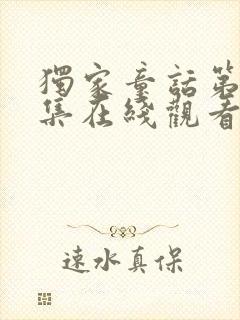 獨家童話第
集在綫觀看
速水真保